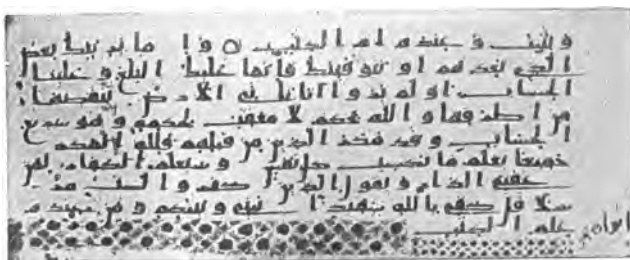 ويثبت وعنده ام الكتب وا ما نرينك بعض
الذي نعدهم او نتوفينك فانما عليك البلغ وعلينا
الحساب او لم يروا انا ناتي الارض ننقصها
من اطرفها والله يحكم لا معقب لحكمه وهو سريع
الحساب وقد مكر الذين من قبلهم فلله المكر
جميعا يعلم ما تكسب كل نفس وسيعلم الكفر لمن
عقبى الدار ويقول الذين كفروا لست مر
سلا قل كفى بالله شهيدا بيني وبينكم ومن عنده
علم الكتب
ابراهيم